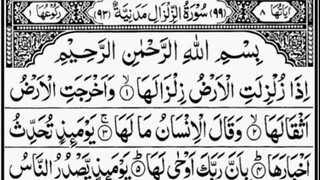 اٰيَاتُهَا ٨ (٩٩) سُوْرَةُ الزِّلْزَالِ مَدَنِيَّةٌ (٩٣) رُكُوْعُهَا ١
بِسْمِ اللّٰهِ الرَّحْمٰنِ الرَّحِيْمِ
اِذَا زُلْزِلَتِ الْاَرْضُ زِلْزَالَهَا ۙ﴿١﴾ وَاَخْرَجَتِ الْاَرْضُ
اَثْقَالَهَا ۙ﴿٢﴾ وَقَالَ الْاِنْسَانُ مَا لَهَا ۚ﴿٣﴾ يَوْمَئِذٍ تُحَدِّثُ
اَخْبَارَهَا ۙ﴿٤﴾ بِاَنَّ رَبَّكَ اَوْحٰى لَهَا ؕ﴿٥﴾ يَوْمَئِذٍ يَّصْدُرُ النَّاسُ